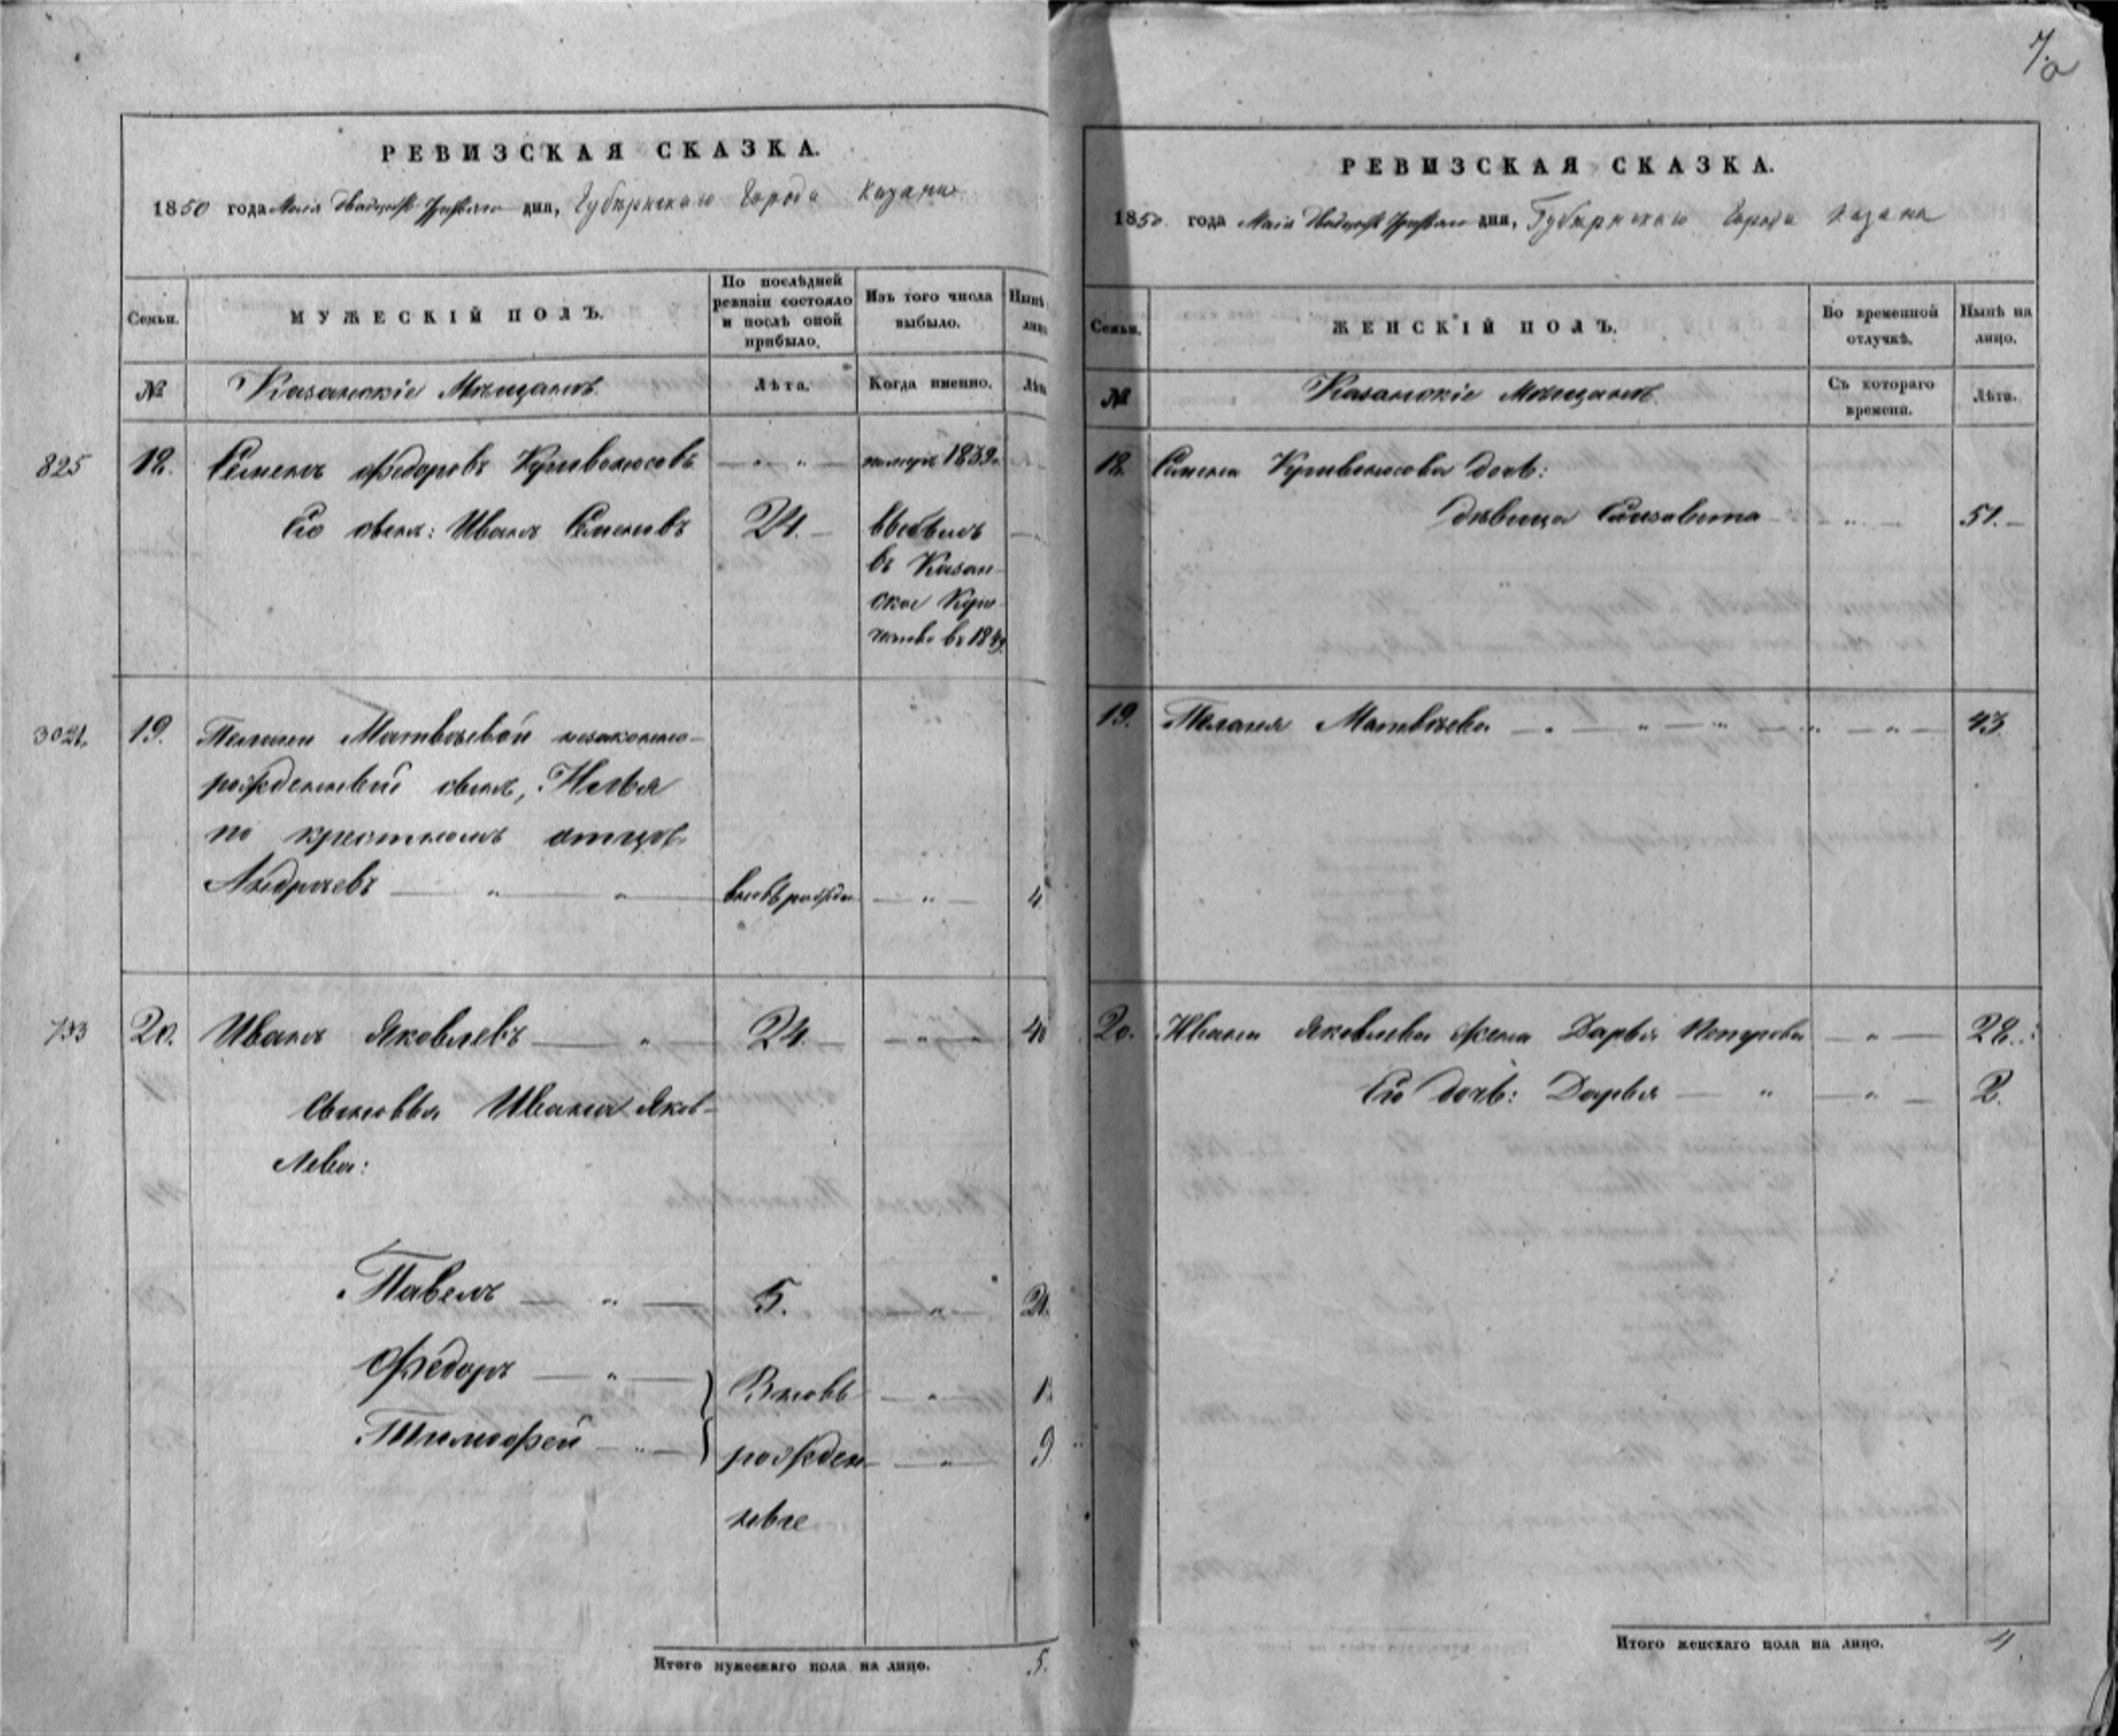 7.
РЕВИЗСКАЯ СКАЗКА.
1850 года Маія двадцать третьяго дня, Губернскаго Города Казани
Семьи.
МУЖЕСКІЙ ПОЛЪ.
По послѣдней ревизіи состояло и послѣ оной прибыло.
Изъ того числа выбыло.
Нынѣ
лиц
№
Казанскіе Мѣщане
Лѣта.
Когда именно.
Лѣт
825 18. Семенъ Федоровъ Кривоносовъ 1839
Его сынъ: Иванъ Семеновъ 24. выбылъ
въ Казан-
ское Купе-
чество въ 1849
3021. 19. Пелагеи Матвѣевой незаконно-
рожденный сынъ, Илья
по крестномъ отцѣ
Андреевъ вновь рожден 4
733 20. Иванъ Яковлевъ 24. 40
Сыновья Ивана Яков-
лева:
Павелъ 5. 21.
Федоръ Вновь 1
Тимофей рожден- 9.
ные
Итого мужескаго пола на лицо. 5.
РЕВИЗСКАЯ СКАЗКА.
1850 года Маія двадцать третьяго дня, Губернскаго Города Казани
Семьи.
ЖЕНСКІЙ ПОЛЪ.
Во временной отлучкѣ.
Нынѣ на лицо.
№
Казанскіе Мѣщане
Съ котораго времени.
Лѣта.
18. Семена Кривоносова дочь:
дѣвица Елизавета 51.
19. Пелагея Матвѣева 43
20. Ивана Яковлева жена Дарья Петрова 28.
Его дочь: Дарья 2.
Итого женскаго пола на лицо. 4